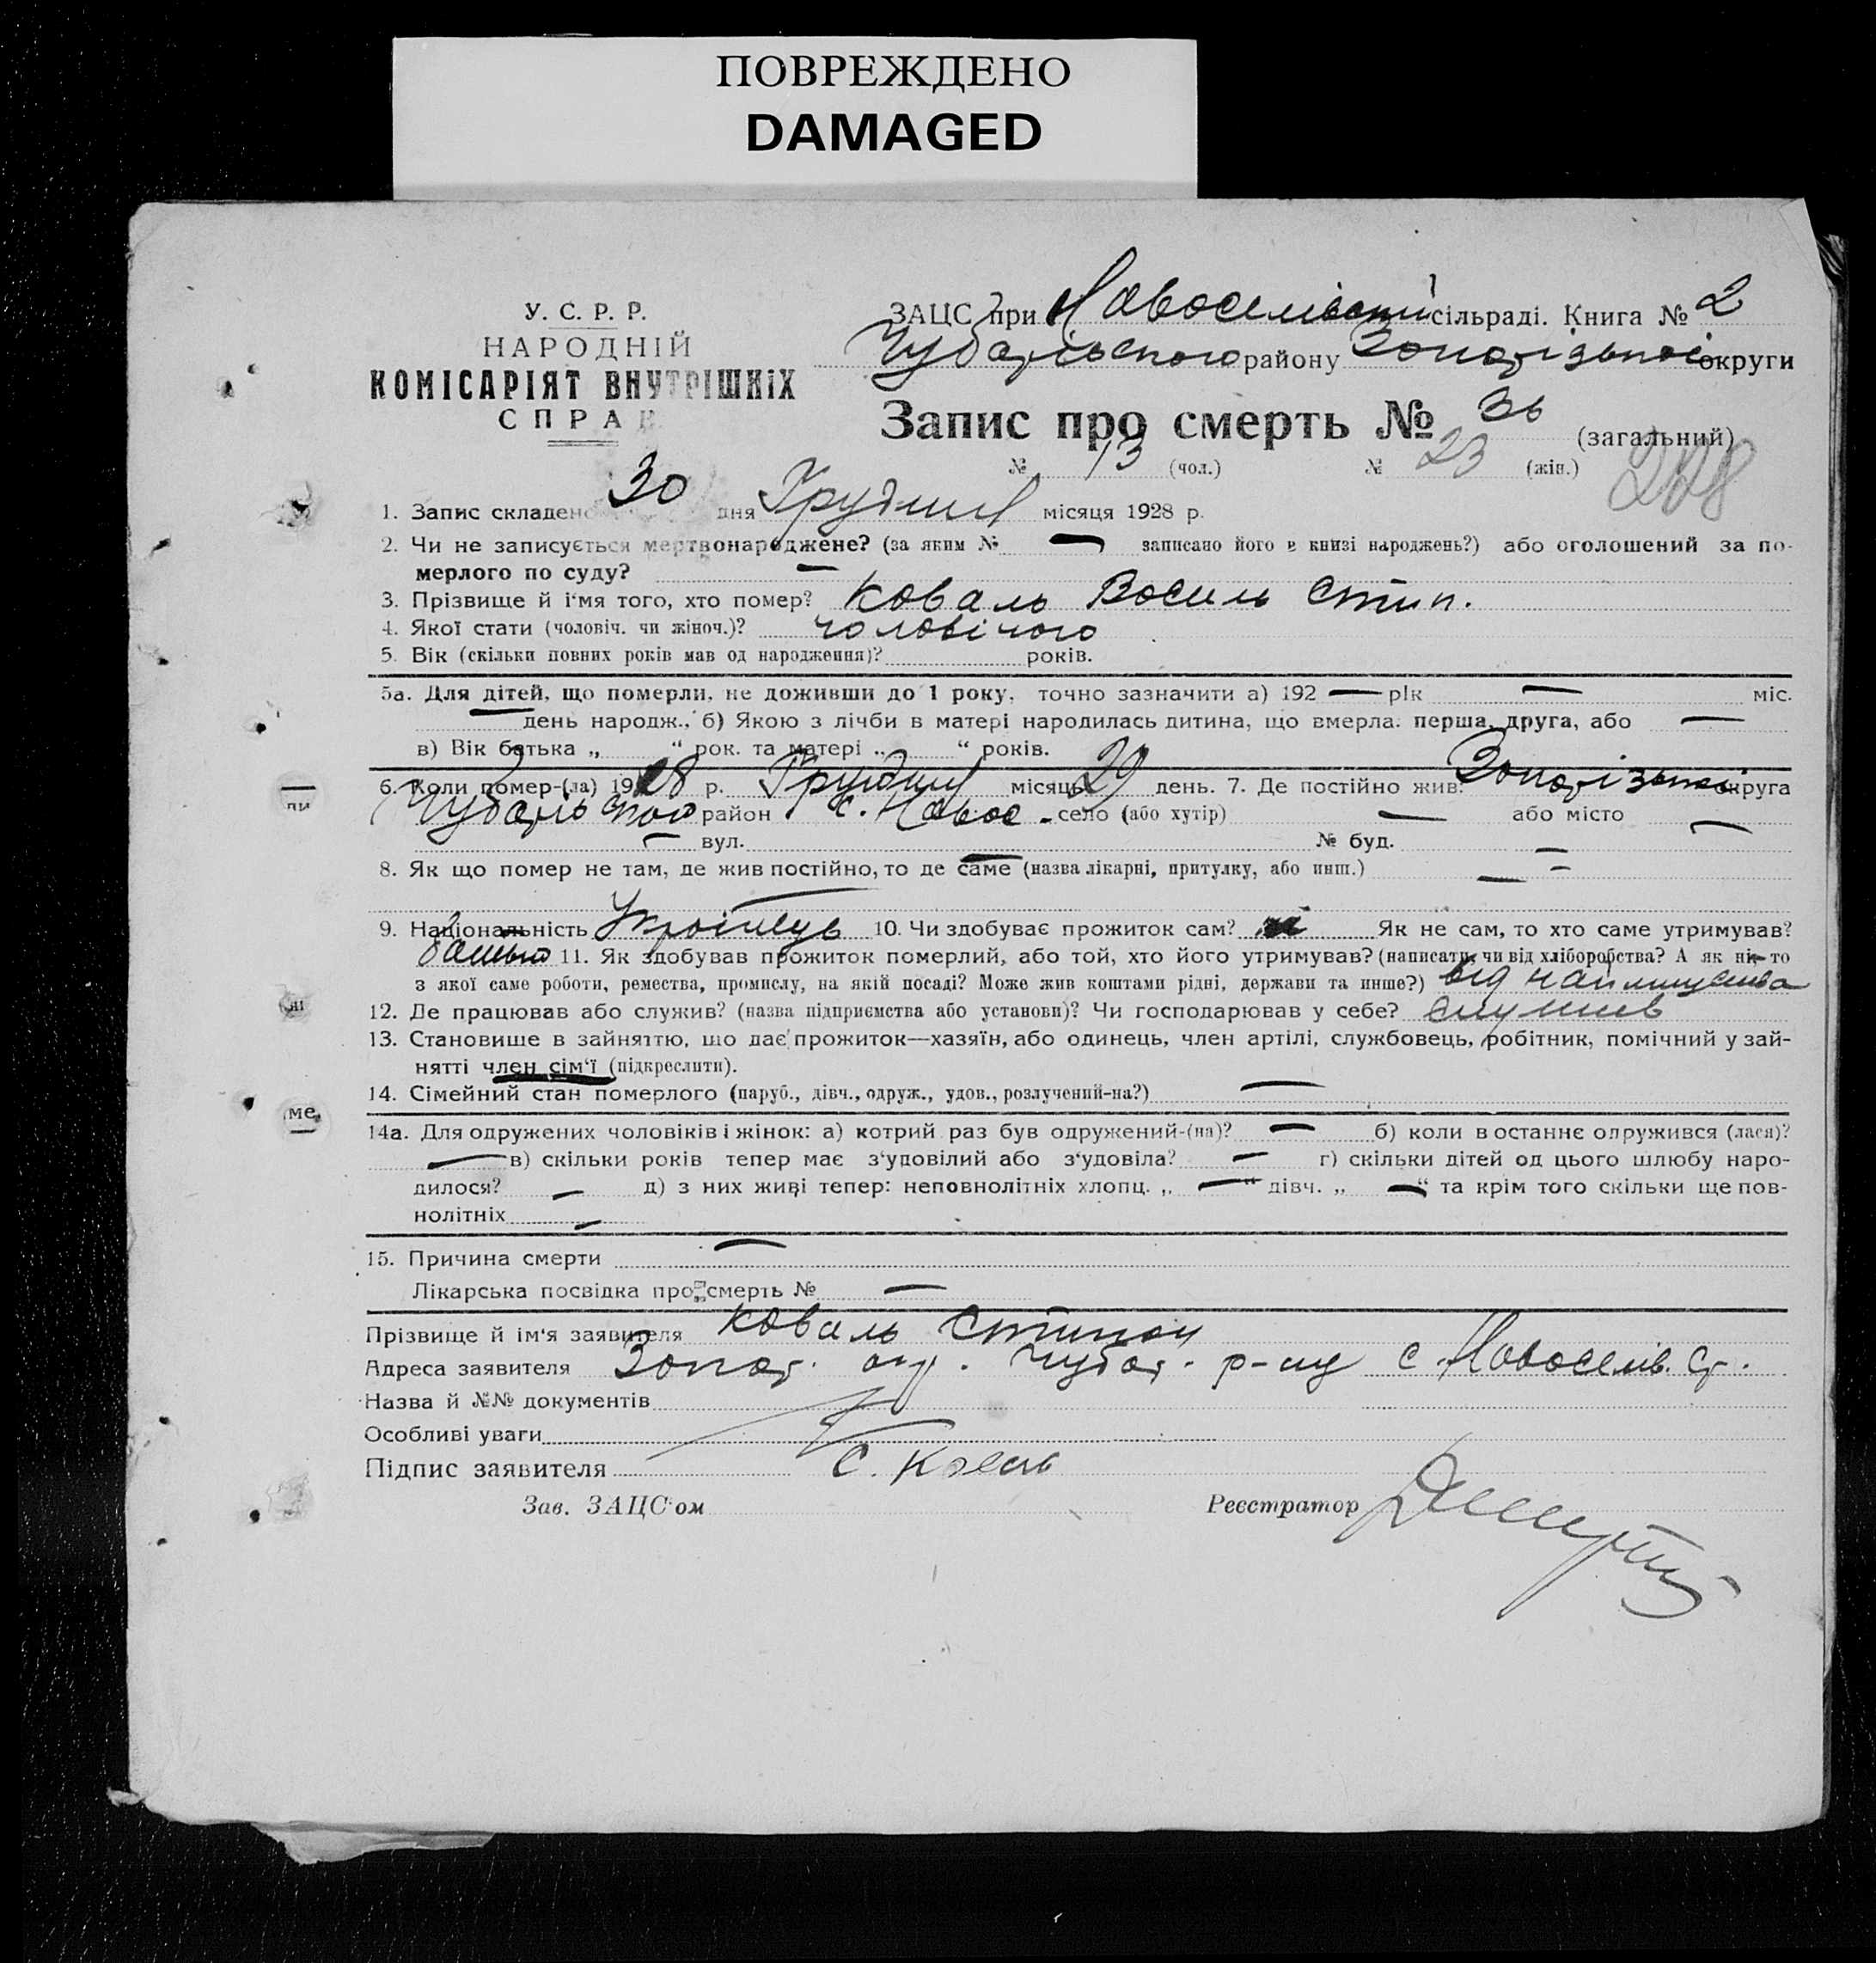 ПОВРЕЖДЕНО
DAMAGED
У. С. Р. Р.
НАРОДНІЙ
КОМІСАРІЯТ ВНУТРІШНІХ
СПРАВ
ЗАЦС при Новоселівській сільраді. Книга № 2
Чубарівського району Запорізької округи
Запис про смерть № 36 (загальний)
№ 13 (чол.) № 23 (жін.)
228
1. Запис складено 30 дня Грудня місяця 1928 р.
2. Чи не записується мертвонароджене? (за яким № — записано його в книзі народжень?) або оголошений за по-
мерлого по суду? —
3. Прізвище й ім'я того, хто помер? Коваль Василь Стип.
4. Якої стати (чоловіч. чи жіноч.)? чоловічого
5. Вік (скільки повних років мав од народження)? років.
5а. Для дітей, що померли, не доживши до 1 року, точно зазначити а) 192 — рік — міс.
— день народж., б) Якою з лічби в матері народилась дитина, що вмерла: перша, друга, або —
в) Вік батька „ “ рок. та матері „ “ років.
6. Коли помер-(ла) 1928 р. Грудня місяць 29 день. 7. Де постійно жив: Запорізької округа
район с. Новос. село (або хутір) — або місто —
— вул. № буд. —
8. Як що помер не там, де жив постійно, то де саме (назва лікарні, притулку, або инш.) — —
9. Національність Українець 10. Чи здобуває прожиток сам? ні Як не сам, то хто саме утримував?
батько 11. Як здобував прожиток померлий, або той, хто його утримував? (написати, чи від хліборобства? А як ні, то
з якої саме роботи, ремества, промислу, на якій посаді? Може жив коштами рідні, держави та инше?) від
12. Де працював або служив? (назва підприємства або установи)? Чи господарював у себе?
13. Становише в зайняттю, що дає прожиток—хазяїн, або одинець, член артілі, службовець, робітник, помічний у зай-
нятті член сім'ї (підкреслити).
14. Сімейний стан померлого (паруб., дівч., одруж., удов., розлучений-на?) —
14а. Для одружених чоловіків і жінок: а) котрий раз був одружений-(на)? — б) коли востаннє одружився (лася)?
— в) скільки років тепер має з'удовілий або з'удовіла? — г) скільки дітей од цього шлюбу наро-
дилося? — д) з них живі тепер: неповнолітніх хлопц. „ — “ дівч. „ — “ та крім того скільки ще пов-
нолітніх —
15. Причина смерти —
Лікарська посвідка про смерть № —
Прізвище й ім'я заявителя Коваль Стипан
Адреса заявителя Запор. окр. Чубар. р-ну с. Новоселів.
Назва й №№ документів
Особливі уваги
Підпис заявителя С. Коваль
Зав. ЗАЦС'ом Реєстратор
ни
ні
ме